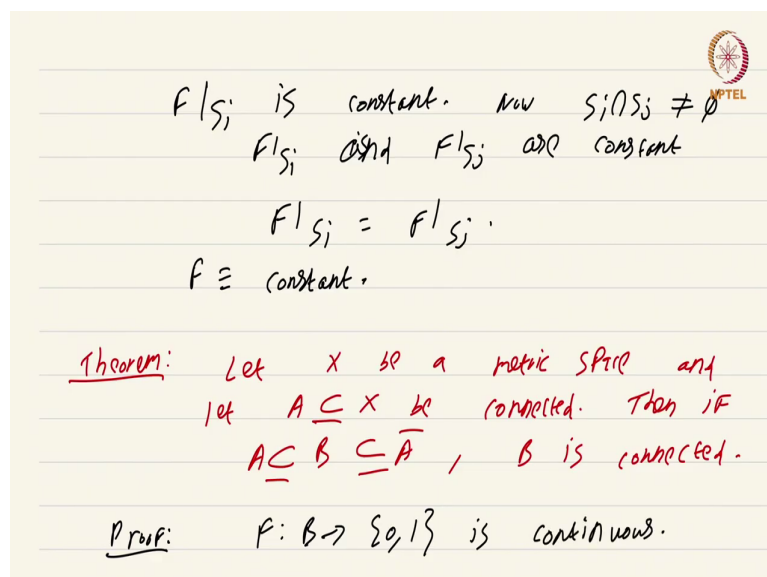 NPTEL
F|Sᵢ is constant. Now Sᵢ∩Sⱼ ≠ ∅
F|Sᵢ and F|Sⱼ are constant
F|Sᵢ = F|Sⱼ.
F ≡ constant.
Theorem: Let X be a metric space and
let A ⊆ X be connected. Then if
A ⊆ B ⊆ A̅, B is connected.
Proof: F: B → {0,1} is continuous.